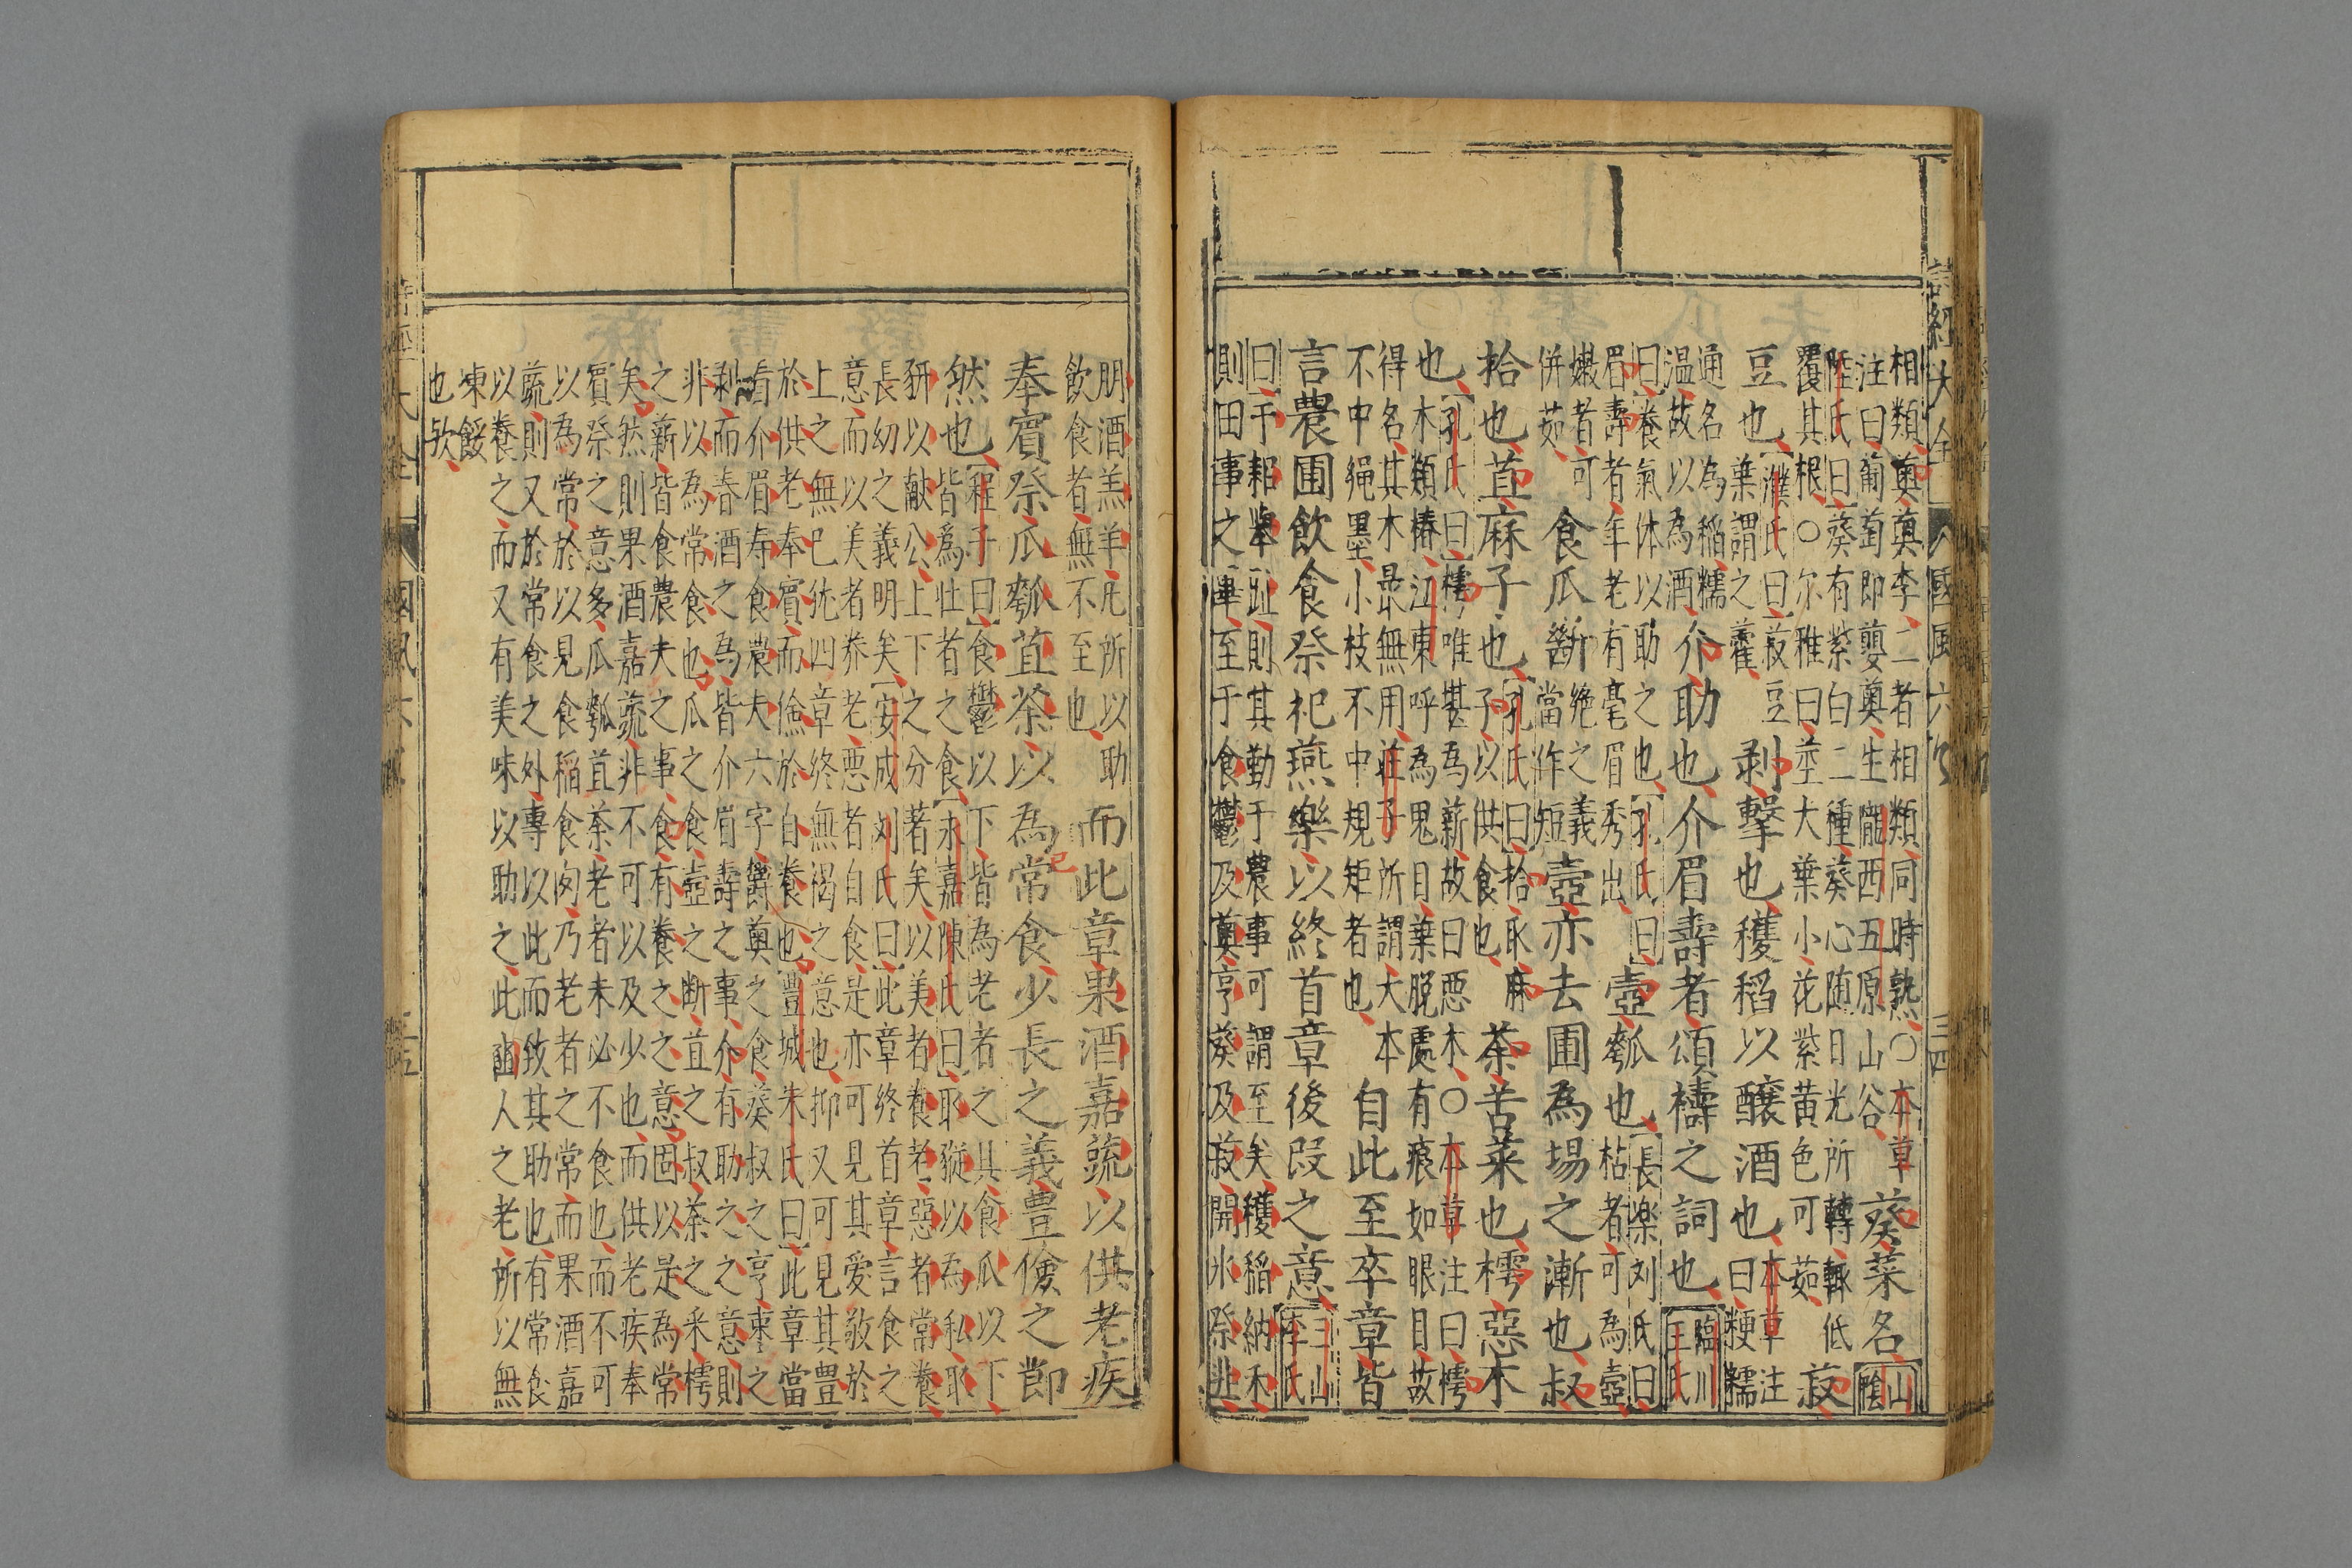 相類薁薁李二者相類同時熟〇本草
注曰葡萄即蘡薁生隴西五原山谷
葵菜名
山陰
陸氏曰葵有紫白二種葵心随日光所轉輒低
覆其根〇尔雅曰荎大葉小花紫黄色可茹
菽
豆也
濮氏曰菽豆
葉謂之藿
剥擊也穫稻以醸酒也
本草注
曰粳糯
通名為稲糯
温故以為酒
介助也介眉壽者頌禱之詞也
臨川
王氏
曰養氣体以助之也孔氏曰
眉壽者年老有毫眉秀出
壺瓠也
長楽刘氏曰
枯者可為壺
嫩者可
併茹
食瓜斷
絶之義
當作短
壺亦去圃為場之漸也叔
拾也苴麻子也
孔氏曰拾取麻
子以供食也
荼苦菜也樗惡木
也
孔氏曰樗唯堪為薪故曰惡木〇本草注曰樗
木類椿江東呼為鬼目葉脱處有痕如眼目故
得名其木最無用莊子所謂大本
不中䋲墨小枝不中規矩者也
自此至卒章皆
言農圃飲食祭祀燕樂以終首章後段之意
三山
李氏
曰于耜舉趾則其勤于農事可謂至矣穫稲納禾
則田事之畢至于食鬱及薁亨葵及菽開氷祭韭
朋酒羔羊凡所以助
飲食者無不至也
而此章果酒嘉蔬以供老疾
奉賓祭瓜瓠苴荼以為常食少長之義豊儉之節
然也
程子曰食鬱以下皆為老者之其食瓜以下
皆為壮者之食永嘉陳氏曰取豵以為私取
豜以献公上下之分著矣以美者養老惡者常養
長幼之義明矣安成刘氏曰此章終首章言食之
意而以美者养老惡者自食是亦可見其愛敬於
上之無已统四章終無褐之意也抑又可見其豊
於供老奉賓而儉於自養也豐城朱氏曰此章當
看介眉寿食農夫六字鬱薁之食葵叔之亨棗之
剥而春酒之為皆介眉壽之事介有助之之意則
非以為常食也瓜之食壺之断苴之叔荼之采樗
之薪皆食農夫之事食有養之之意固以是為常
矣然則果酒嘉蔬非不可以及少也而供老疾奉
賓祭之意多瓜瓠苴荼老者未必不食也而不可
以為常於以見食稲食肉乃老者之常而果酒嘉
蔬則又於常食之外專以此而致其助也有常食
以養之而又有美味以助之此豳人之老所以無
凍餒
也欤
詩經大全
國風六
三四